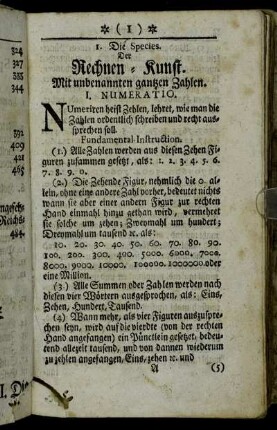 324
334
344
392
409
421
435
Reichs-
484.
I. Die
* ( 1 ) *
1. Die Species.
Der
Rechnen-Kunst.
Mit unbenannten gantzen Zahlen.
I. NUMERATIO.
Numeriren heist Zehlen, lehret, wie man die
Zahlen ordentlich schreiben und recht aus-
sprechen soll.
Fundamental-Instruction.
(1.) Alle Zahlen werden aus diesen Zehen Fi-
guren zusammen gesetzt, als: 1. 2. 3. 4. 5. 6.
7. 8. 9. 0.
(2.) Die Zehende Figur, nehmlich die 0. al-
lein, ohne eine andere Zahl vorher, bedeutet nichts
wann sie aber einer andern Figur zur rechten
Hand einmahl hinzu gethan wird, vermehret
sie solche um zehen; Zweymahl um hundert;
Dreymahl um tausend ꝛc. als:
10. 20. 30. 40. 50. 60. 70. 80. 90.
100. 200. 300. 400. 5000. 6000. 7000.
8000. 9000. 10000. 100000. 1000000. oder
eine Million.
(3.) Alle Summen oder Zahlen werden nach
diesen vier Wörtern ausgesprochen, als: Eins,
Zehen, Hundert, Tausend.
(4.) Wann mehr, als vier Figuren auszuspre-
chen seyn, wird auf die vierdte (von der rechten
Hand angefangen) ein Pünctlein gesetzt, bedeu-
tend allezeit tausend, und von dannen wiederum
zu zehlen angefangen, Eins, zehen ꝛc. und
A (5)